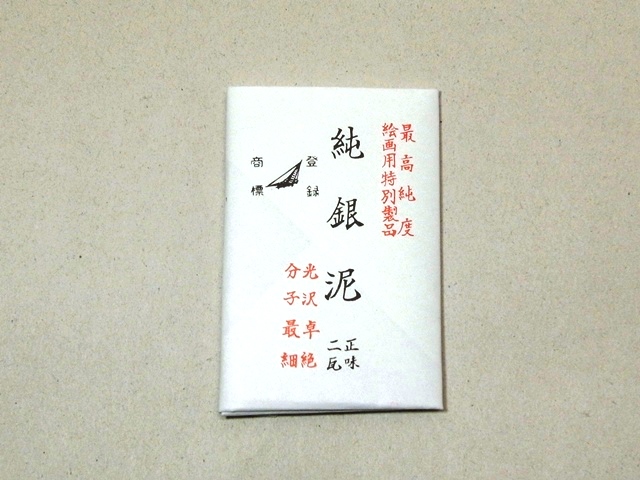 最高純度
絵画用特別製品
純銀泥
正味
二瓦
登録
商標
光沢卓絶
分子最細